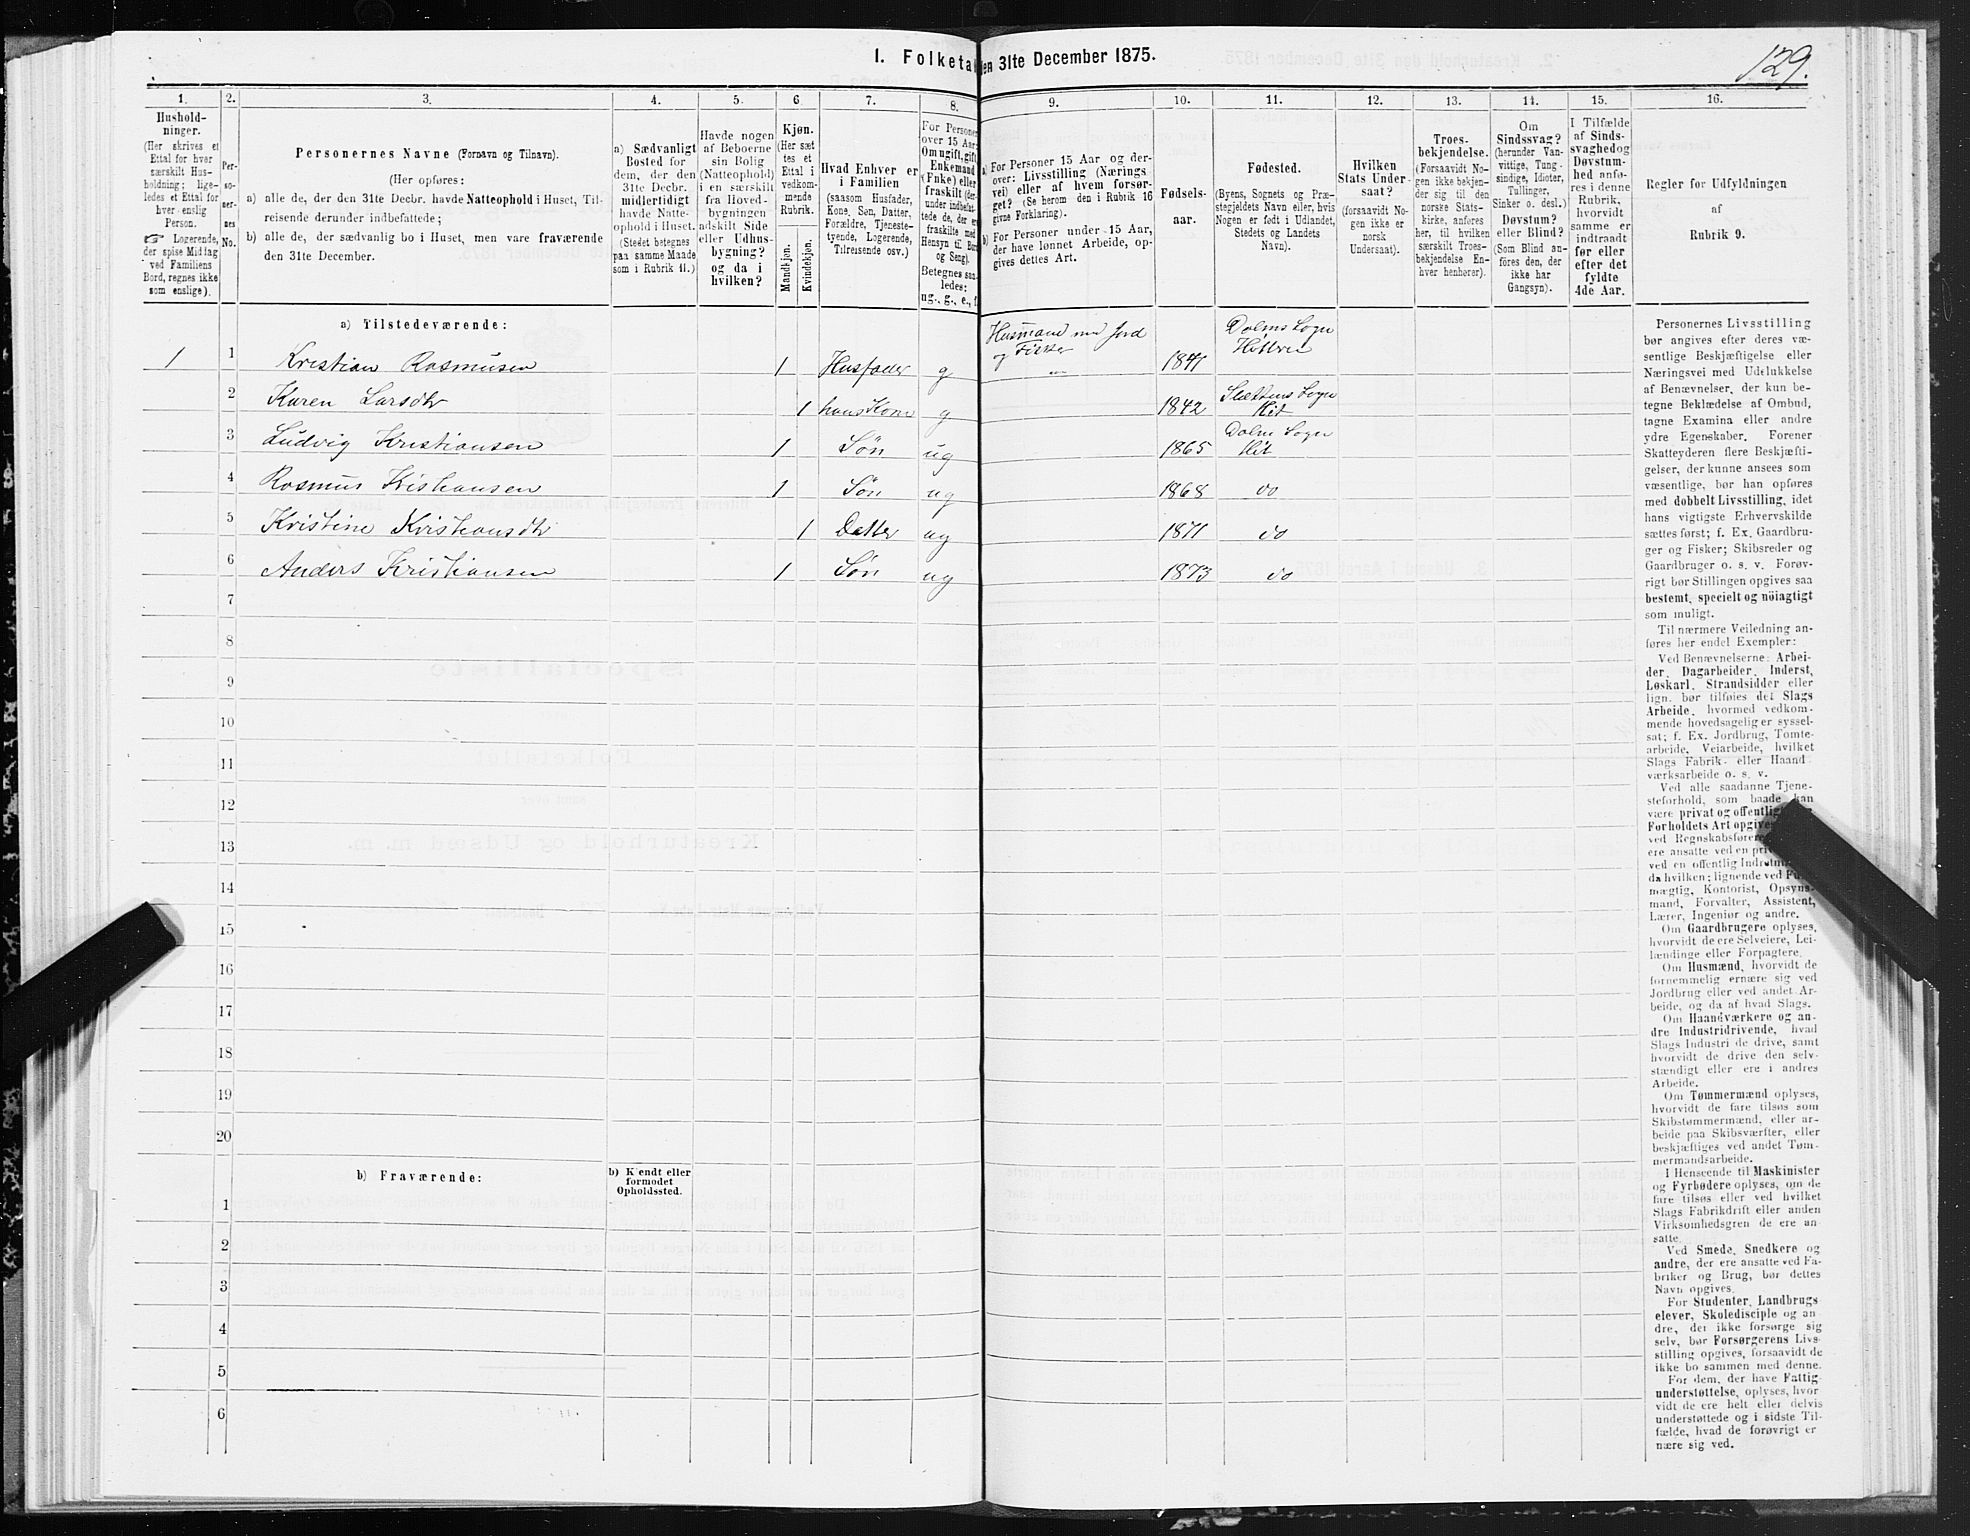 1. Folketa
en 31te December 1875.
129.
1.
2.
3.
4.
5.
6.
7.
8.
9.
10.
11.
12.
13.
14.
15.
16.
Hushold-
ninger.
(Her skrives et
Ettal for hver
særskilt Hus-
holdning; lige-
ledes et Ettal for
hver enslig
Person.
☞ Logerende,
der spise Middag
ved Familiens
Bord, regnes ikke
som enslige).
Per-
so-
ner-
nes
No.
Personernes Navne (Fornavn og Tilnavn).
(Her opføres:
a) alle de, der den 31te Decbr. havde Natteophold i Huset, Til-
reisende derunder indbefattede;
b) alle de, der sædvanlig bo i Huset, men vare fraværende
den 31te December.
a) Sædvanligt
Bosted for
dem, der den
31te Decbr.
midlertidigt
havde Natte-
ophold i Huset.
(Stedet betegnes
paa samme Maade
som i Rubrik 11.)
Havde nogen
af Beboerne
sin Bolig
(Natteophold)
i en særskilt
fra Hoved-
bygningen
adskilt Side
eller Udhus-
bygning?
og da i
hvilken?
Kjøn.
(Her sæt
tes et
Ettal i
vedkom-
mende
Rubrik.
Mandkjøn.
Kvindekjøn.
Hvad Enhver er
i Familien
(saasom Husfader,
Kone, Søn, Datter,
Forældre, Tjeneste-
tyende, Logerende,
Tilreisende osv.)
For Personer
over 15 Aar:
Om ugift, gift,
Enkemand
(Enke) eller
fraskilt (der-
under indbefat-
tede de, der er
fraskilte med
Hensyn til Bord
og Seng).
Betegnes saa-
ledes:
ug., g., e., f.
a) For Personer 15 Aar og der-
over: Livsstilling (Nærings
vei) eller af hvem forsør-
get? (Se herom den i Rubrik 16
givne Forklaring).
b) For Personer under 15 Aar,
der have lønnet Arbeide, op-
gives dettes Art.
Fødsels-
aar.
Fødested.
(Byens, Sognets og Præ-
stegjeldets Navn eller, hvis
Nogen er født i Udlandet,
Stedets og Landets
Navn).
Hvilken
Stats Under-
saat?
(forsaavidt No-
gen ikke er
norsk
Undersaat).
Troes-
bekjendelse.
(Forsaavidt No-
gen ikke bekjen-
der sig til den
norske Stats-
kirke, anføres
her, til hvilken
særskilt Troes-
bekjendelse En-
hver henhører).
Om
Sindssvag?
(herunder Van-
vittige, Tung-
sindige, Idioter,
Tullinger,
Sinker o. desl.)
Døvstum?
eller Blind?
(Som Blind an-
føres den, der
ikke har
Gangsyn).
I Tilfælde
af Sinds-
svaghed og
Døvstum-
hed anfø-
res i denne
Rubrik,
hvorvidt
samme er
indtraadt
før eller
efter det
fyldte
4de Aar.
Regler for Udfyldningen
af
Rubrik 9.
a) Tilstedeværende:
1 1 Kristian Rasmusen 1 Husfader g Husmand med Jord og Fisker 1841 Dolms Sogn Hitteren
2 Karen Larsdtr 1 hans Kone g 1842 Slettens Sogn Hit
3 Ludvig Kristiansen 1 Søn ug 1865 Dolm Sogn Hit
4 Rasmus Kristiansen 1 Søn ug 1868 do
5 Kristine Kristiansdtr 1 Datter ug 1871 do
6 Anders Kristiansen 1 Søn ug 1873 do
7
8
9
10
11
12
13
14
15
16
17
18
19
20
b) Fraværende:
b) Kjendt eller
formodet
Opholdssted.
1
2
3
4
5
6
Personernes Livsstilling
bør angives efter deres væ-
sentlige Beskjæftigelse eller
Næringsvei med Udelukkelse
af Benævnelser, der kun be-
tegne Beklædelse af Ombud,
tagne Examina eller andre
ydre Egenskaber. Forener
Skatteyderen flere Beskjæfti-
gelser, der kunne ansees som
væsentlige, bør han opføres
med dobbelt Livsstilling, idet
hans vigtigste Erhvervskilde
sættes først; f. Ex. Gaardbru-
ger og Fisker; Skibsreder og
Gaardbruger o. s. v. Forøv-
rigt bør Stillingen opgives saa
bestemt, specielt og nöiagtigt
som muligt.
Til nærmere Veiledning an-
føres her endel Exempler:
Ved Benævnelserne: Arbei-
der, Dagarbeider, Inderst,
Løskarl, Strandsidder eller
lign. bør tilføies det Slags
Arbeide, hvormed vedkom-
mende hovedsagelig er syssel-
sat; f. Ex. Jordbrug, Tomte-
arbeide, Veiarbeide, hvilket
Slags Fabrik- eller Haand
værksarbeide o. s. v.
Ved alle saadanne Tjene-
steforhold, som baade kan
være privat og offentlig
Forholdets Art opgives
ved Regnskabsførere
ere ansatte ved en pri
ved en offentlig Indretni
da hvilken; lignende ved Fuld-
mægtig, Kontorist, Opsyns-
mand, Forvalter, Assistent,
Lærer, Ingeniør og andre.
Om Gaardbrugere oplyses,
hvorvidt de ere Selveiere, Lei-
lændinge eller Forpagtere.
Om Husmænd, hvorvidt de
fornemmelig ernære sig ved
Jordbrug eller ved andet Ar-
beide, og da af hvad Slags.
Om Haandværkere og an-
dre Industridrivende, hvad
Slags Industri de drive, samt
hvorvidt de drive den selv-
stændigt eller ere i andres
Arbeide.
Om Tømmermænd oplyses,
hvorvidt de fare tilsøs som
Skibstømmermænd, eller ar-
beide paa Skibsværfter, eller
beskjæftiges ved andet Tøm-
mermandsarbeide.
I Henseende til Maskinister
og Fyrbødere oplyses, om de
fare tilsøs eller ved hvilket
Slags Fabrikdrift eller anden
Virksomhedsgren de ere an-
satte.
Ved Smede, Snedkere og
andre, der ere ansatte ved Fa-
briker og Brug, bør dettes
Navn opgives.
For Studenter, Landbrugs
elever, Skoledisciple og an-
dre, der ikke forsørge sig
selv, bør Forsørgerens Livs-
stilling opgives, forsaavidt de
ikke bo sammen med denne.
For dem, der have Fattig-
understøttelse, oplyses, hvor
vidt de ere helt eller delvis
understøttede og i sidste Til-
fælde, hvad de forøvrigt er
nære sig ved.